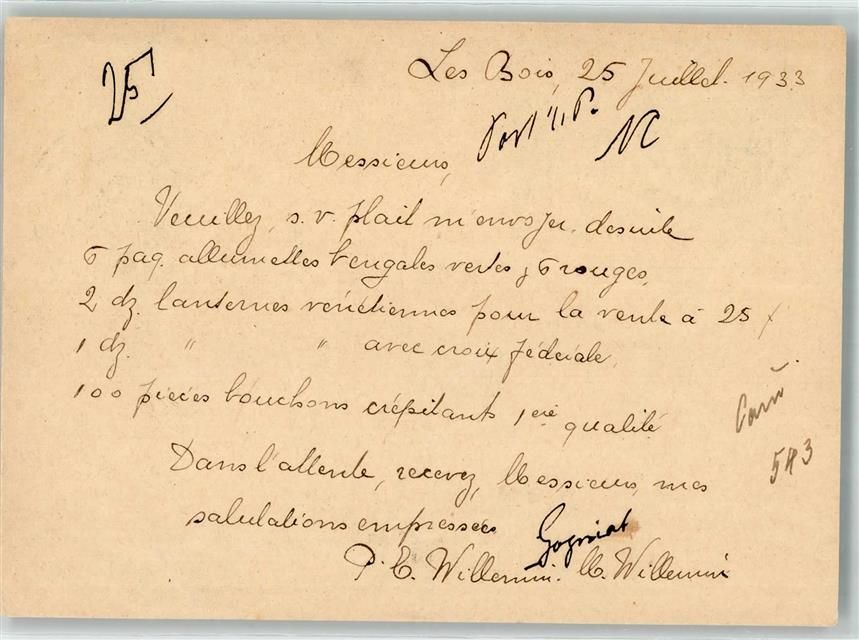 Les Bois, 25 Juillet. 1933
25
Messieurs,
Veuillez, s. v. plait m'envoyer. desuite
6 paq. allumettes bengales vertes, 6 rouges,
2 dz. lanternes vénétiennes pour la vente à 25
1 dz. " " avec croix fédérale,
100 pièces bouchons crépitants 1ère qualité
Dans l'attente, recevez, Messieurs, mes
salutations empressées
Gogniat
P. E. Willemin. M. Willemin